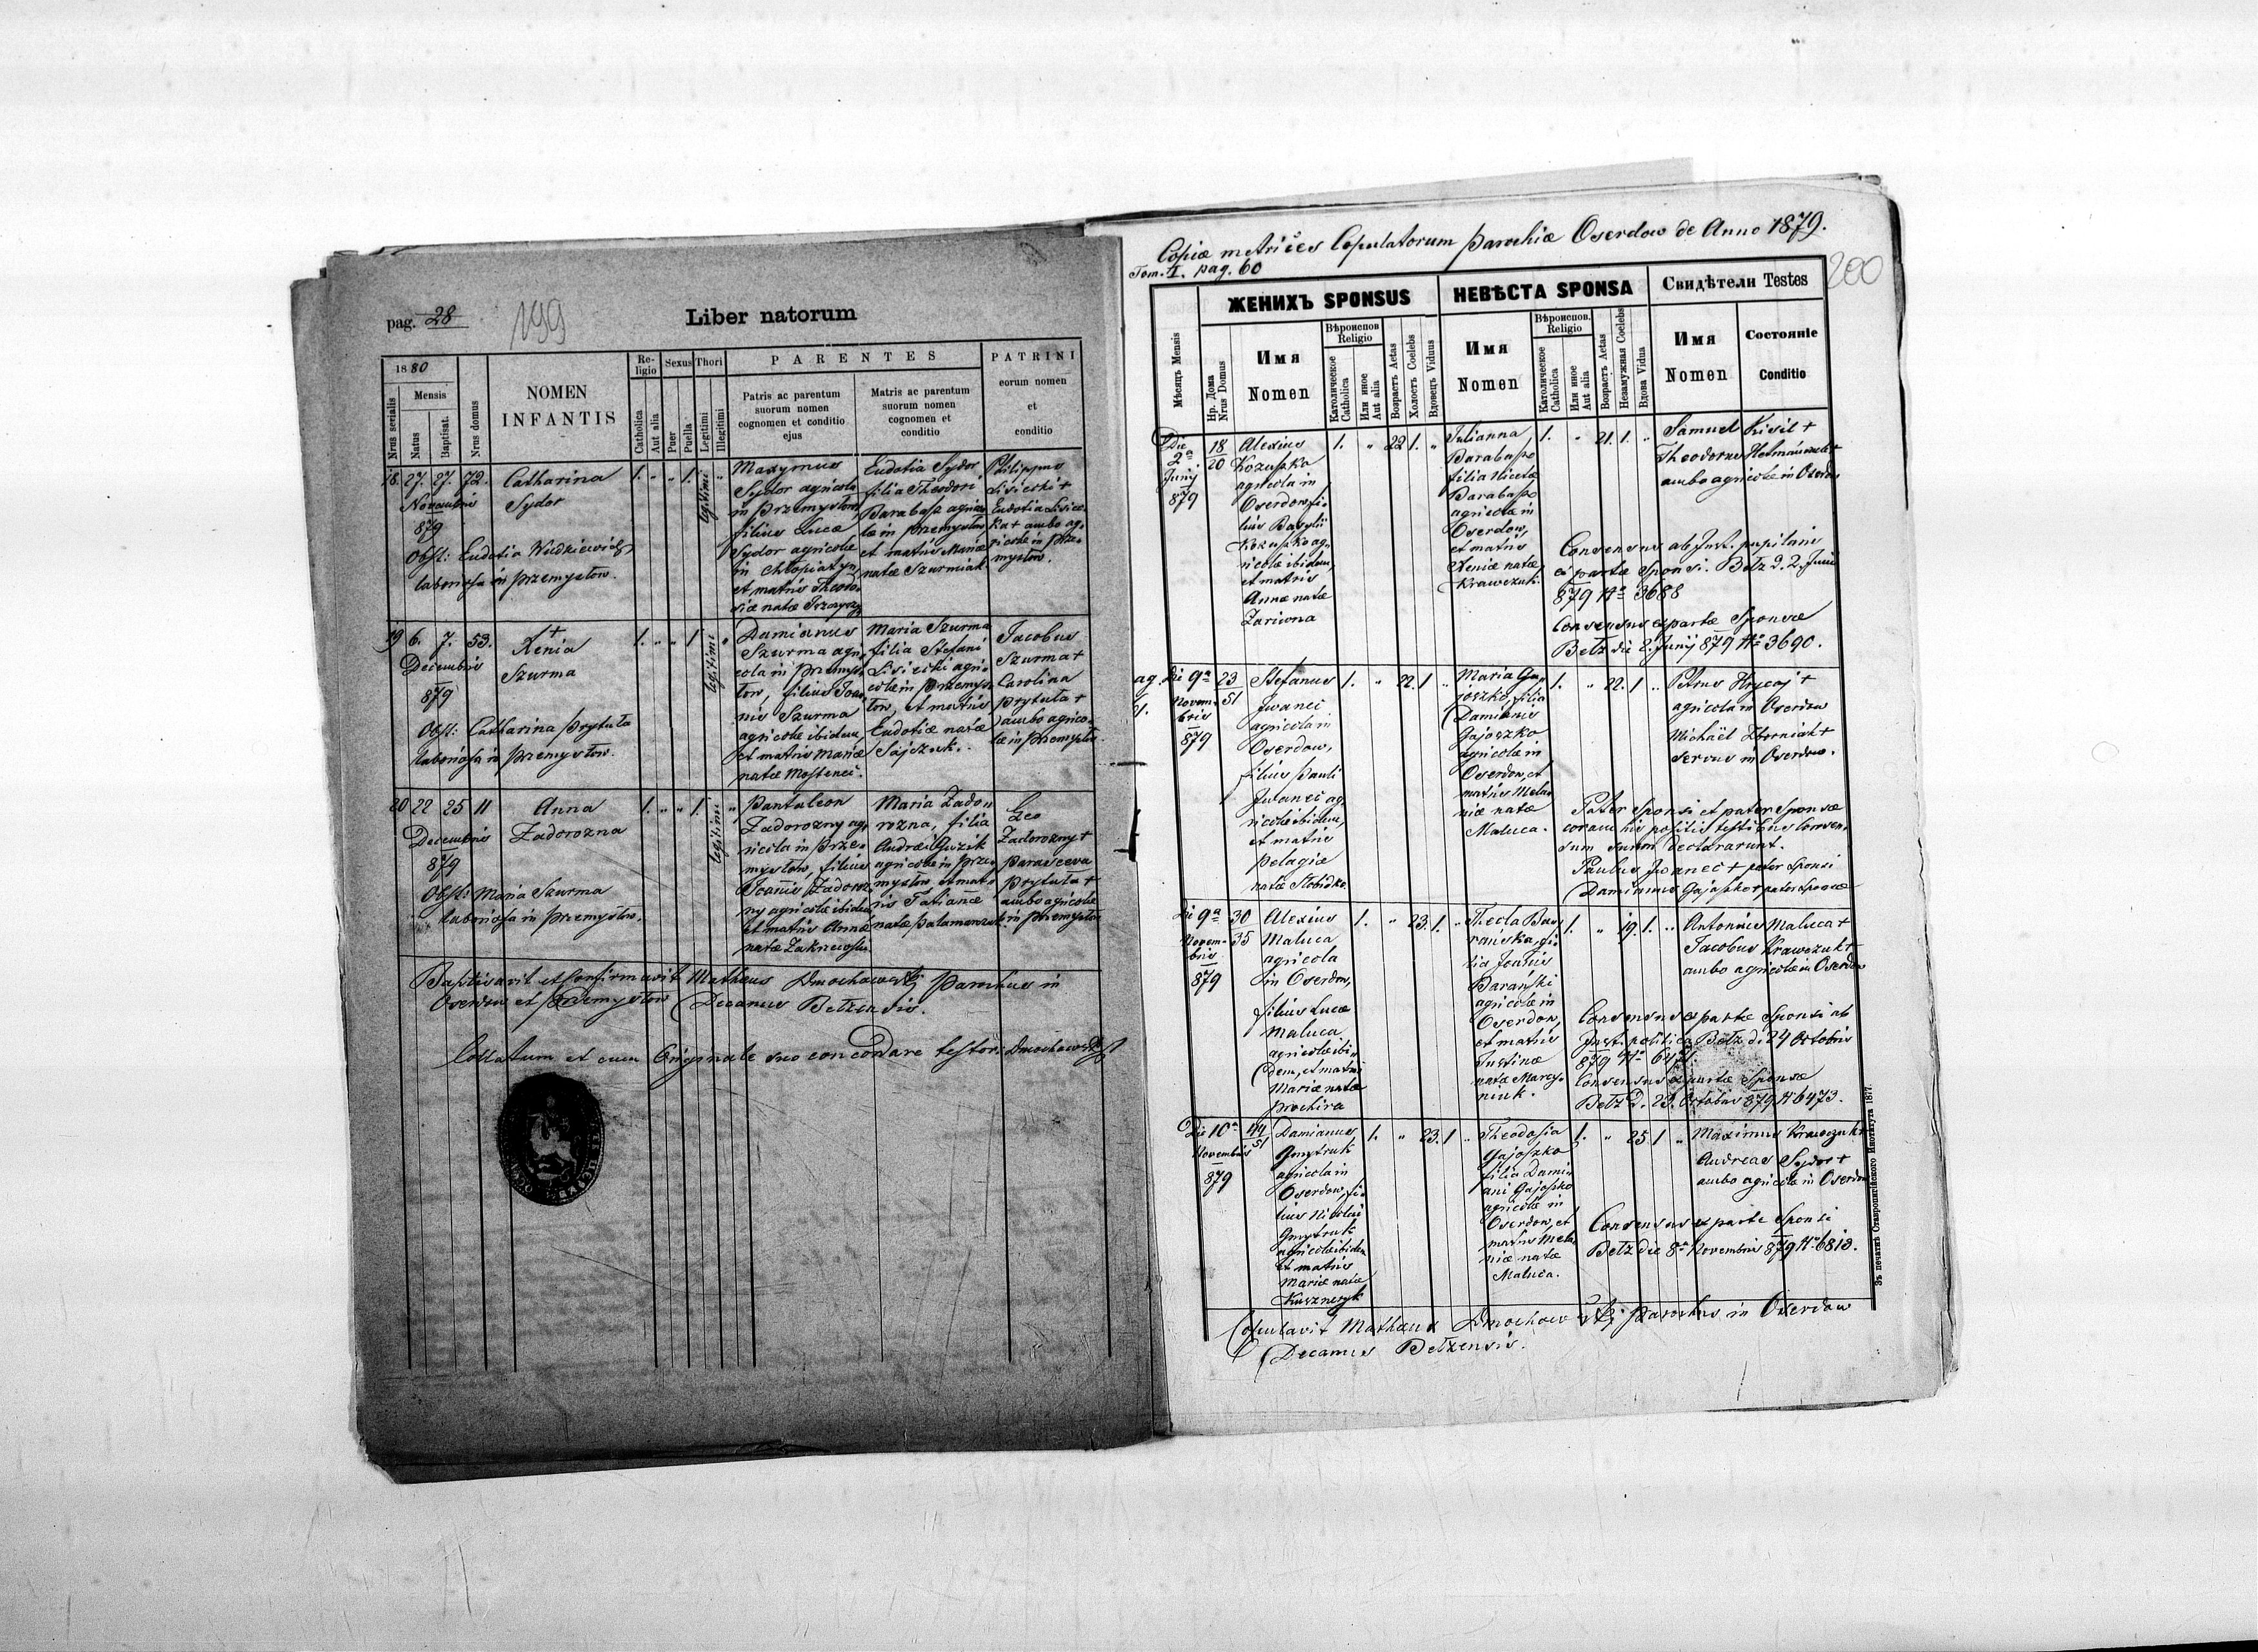 pag. 28
199
Liber natorum
1880
Mensis
Nrus serialis
Natus
Baptisat.
Nrus domus
NOMEN
INFANTIS
Re-
ligio
Catholica
Aut alia
Sexus
Puer
Puella
Thori
Legitimi
Illegitimi
PARENTES
Patris ac parentum
suorum nomen
cognomen et conditio
ejus
Matris ac parentum
suorum nomen
cognomen et
conditio
PATRINI
eorum nomen
et
conditio
18. 27. 27. 72.
Novembris
879
Catharina
Sydor
1. " " 1. legitimi "
Maxymus
Sydor agricola
in Przemysłow
filius Lucæ
Sydor agricolæ
in Chłopiatyn,
et matris Theodo-
siæ natæ
Eudotia Sydor
filia Theodori
Barabasz agrico-
læ in Przemysłow
et matris Mariæ
natæ Szurmiak.
Philippus
Lisiecki +
Eudotia Lisiec-
ka + ambo ag-
ricolæ in Prze-
mysłow.
Obst: Eudotia
laboriosa in Przemysłow.
19 6. 7. 53.
Decembris
879
+
Xenia
Szurma
1. " " 1 legitimi "
Damianus
Szurma agri-
cola in Przemys-
łow, filius Joan-
nis Szurma
agricolæ ibidem,
et matris Mariæ
natæ Mostenci.
Maria Szurma
filia Stefani
Lisiecki agri-
colæ in Przemys-
łow, et matris
Eudotiæ natæ
Sajczuk.
Jacobus
Szurma +
Carolina
Prytuła +
ambo agrico-
læ in Przemysłow.
Obst: Catharina Prytuła
laboriosa in Przemysłow.
20 22 25 11
Decembris
879
Anna
Zadorozna
1. " " 1. legitimi "
Pantaleon
Zadorozny ag-
ricola in Prze-
mysłow, filius
Joannis Zadoroz-
ny agricolæ ibidem
et matris Annæ
natæ
Maria Zado-
rozna, filia
Andreæ Guzik
agricolæ in Prze-
mysłow et mat-
ris Tatianæ
natæ
Leo
Zadorozny +
Parasceva
Prytuła +
ambo agricolæ
in Przemysłow
Obst: Maria Szurma
laboriosa in Przemysłow.
Baptisavit et Confirmavit Matheus Dmochowski Parochus in
Oserdow et Przemysłow Decanus Bełzensis.
Collatum et cum Originale suo concordare testor: Dmochowski
Copiæ metrices Copulatorum parochiæ Oserdow de Anno 1879.
Tom. I. pag. 60
200
ЖЕНИХЪ SPONSUS
НЕВѢСТА SPONSA
Свидѣтели Testes
Мѣсяцъ Mensis
Нр. Дома
Nrus Domus
Имя
Nomen
Вѣроиспов
Religio
Католическое
Catholica
Или иное
Aut alia
Возрастъ Aetas
Холостъ Coelebs
Вдовецъ Viduus
Имя
Nomen
Вѣроиспов.
Religio
Католическое
Catholica
Или иное
Aut alia
Возрастъ Aetas
Незамужная Coelebs
Вдова Vidua
Имя
Nomen
Состояніе
Conditio
Die
2a
Junij
879
18
20
Alexius
Kozuszko
agricola in
Oserdow fi-
lius Basylii
Kozuszko ag-
ricolæ ibidem,
et matris
Annæ natæ
Zariwna
1. " 22 1. "
Julianna
Barabasz
filia Nicolæ
Barabasz
agricolæ in
Oserdow,
et matris
Xeniæ natæ
Krawczuk.
1. " 21. 1. "
Samuel Kisil +
Theodorus
ambo agricolæ in Oserdow
Consensus ab Just. pupilari
ex partæ Sponsi. Bełz d. 2. Junii
879 No 3688
Consensus expartæ Sponsæ
Bełz die 2. Junij 879 No 3690.
Die 9a
Novem-
bris
879
23
51
Stefanus
Iwanec
agricola in
Oserdow,
filius Pauli
Iwanec ag-
ricolæ ibidem,
et matris
Pelagiæ
natæ Słobidko.
1. " 22. 1 "
Maria Ga-
joszko, filia
Damianis
Gajoszko
agricolæ in
Oserdow, et
matris Mela-
niæ natæ
Maluca.
1. " 22. 1 "
Petrus Hrycaj +
agricola in Oserdow
Michäel Zborniak +
servus in Oserdow.
Pater Sponsi et pater Sponsæ
coram his positis testibus Consen-
sum suum declararunt.
Paulus Iwanec + pater Sponsi
Damianus Gajoszko + pater Sponsæ
Die 9a
Novem-
bris
879
30
35
Alexius
Maluca
agricola
in Oserdow,
filius Lucæ
Maluca
agricolæ ibi-
dem, et matris
Mariæ natæ
Prochira
1. " 23. 1. "
Thecla Ba-
ranska, fi-
lia Joanis
Barański
agricolæ in
Oserdow,
et matris
Justinæ
natæ Marcy-
niuk.
1. " 19. 1. "
Antonius Maluca +
Jacobus Krawczuk +
ambo agricolæ in Oserdow
Consensus ex parte Sponsi ab
Just. politica Bełz d. 24 Octobris
Consensus expartæ Sponsæ
Bełz d. 23. Octobris 879 N 6473.
Die 10a
Novembris
879
44
51
Damianus
Gmytruk
agricola in
Oserdow, fi-
lius Nicolai
Gmytruk
agricolæ ibidem
et matris
Mariæ natæ
Kuszneryk
1. " 23. 1 "
Theodosia
Gajoszko
filia Dami-
ani Gajoszko
agricolæ in
Oserdow, et
matris Mela-
niæ natæ
Maluca.
1. " 25 1 "
Maximus Krawczuk +
Andreas Sydor +
ambo agricolæ in Oserdow
Consensus ex parte Sponsi
Bełz die 8a Novembris 879 No 6813.
Copulavit Matheus Dmochowski Parochus in Oserdow
Decanus Bełzensis.
Зъ печатнѣ Ставропигійского Института 1877.